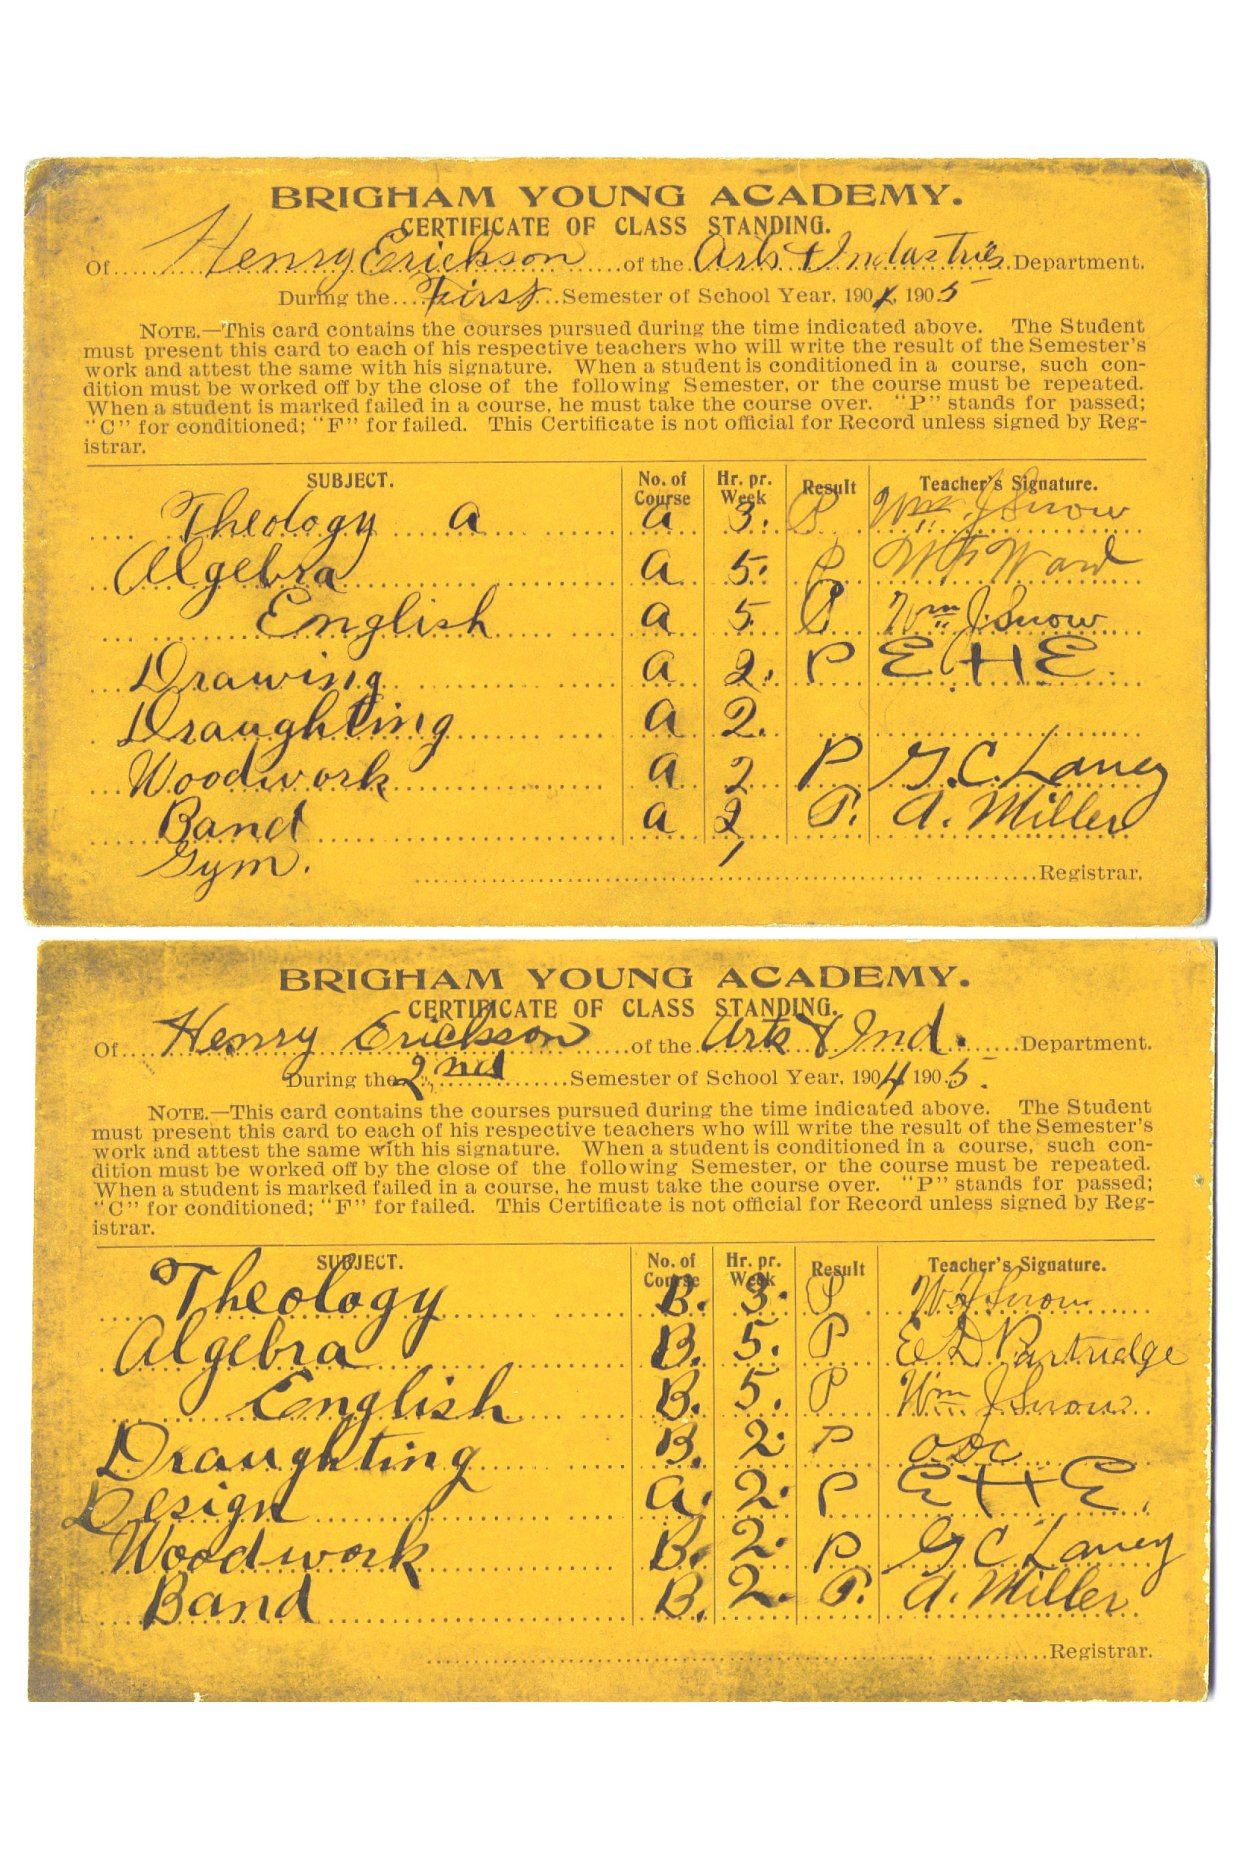 BRIGHAM YOUNG ACADEMY.
CERTIFICATE OF CLASS STANDING.
Of Henry Erickson of the Arts & Industries Department.
During the First Semester of School Year, 1904, 1905
NOTE.—This card contains the courses pursued during the time indicated above. The Student
must present this card to each of his respective teachers who will write the result of the Semester's
work and attest the same with his signature. When a student is conditioned in a course, such con-
dition must be worked off by the close of the following Semester, or the course must be repeated.
When a student is marked failed in a course, he must take the course over. "P" stands for passed;
"C" for conditioned; "F" for failed. This Certificate is not official for Record unless signed by Reg-
istrar.
SUBJECT. No. of Course Hr. pr. Week Result Teacher's Signature.
Theology a a 3. P Wm. J Snow
Algebra a 5. P Ward
English a 5 P Wm J. Snow
Drawing a 2. P E H E.
Draughting a 2.
Woodwork a 2 P G. C. Laney
Band a 2 P. A. Miller
Gym. 1
Registrar.
BRIGHAM YOUNG ACADEMY.
CERTIFICATE OF CLASS STANDING.
Of Henry Erickson of the Arts & Ind. Department.
During the 2nd Semester of School Year, 1904 1905.
NOTE.—This card contains the courses pursued during the time indicated above. The Student
must present this card to each of his respective teachers who will write the result of the Semester's
work and attest the same with his signature. When a student is conditioned in a course, such con-
dition must be worked off by the close of the following Semester, or the course must be repeated.
When a student is marked failed in a course, he must take the course over. "P" stands for passed;
"C" for conditioned; "F" for failed. This Certificate is not official for Record unless signed by Reg-
istrar.
SUBJECT. No. of Course Hr. pr. Week Result Teacher's Signature.
Theology B. 3. P W J Snow
Algebra B. 5. P E D Partridge
English B. 5. P Wm J. Snow
Draughting B. 2. P ODC
Design a. 2. P E H E.
Woodwork B. 2. P G C Laney
Band B. 2. P. A. Miller
Registrar.